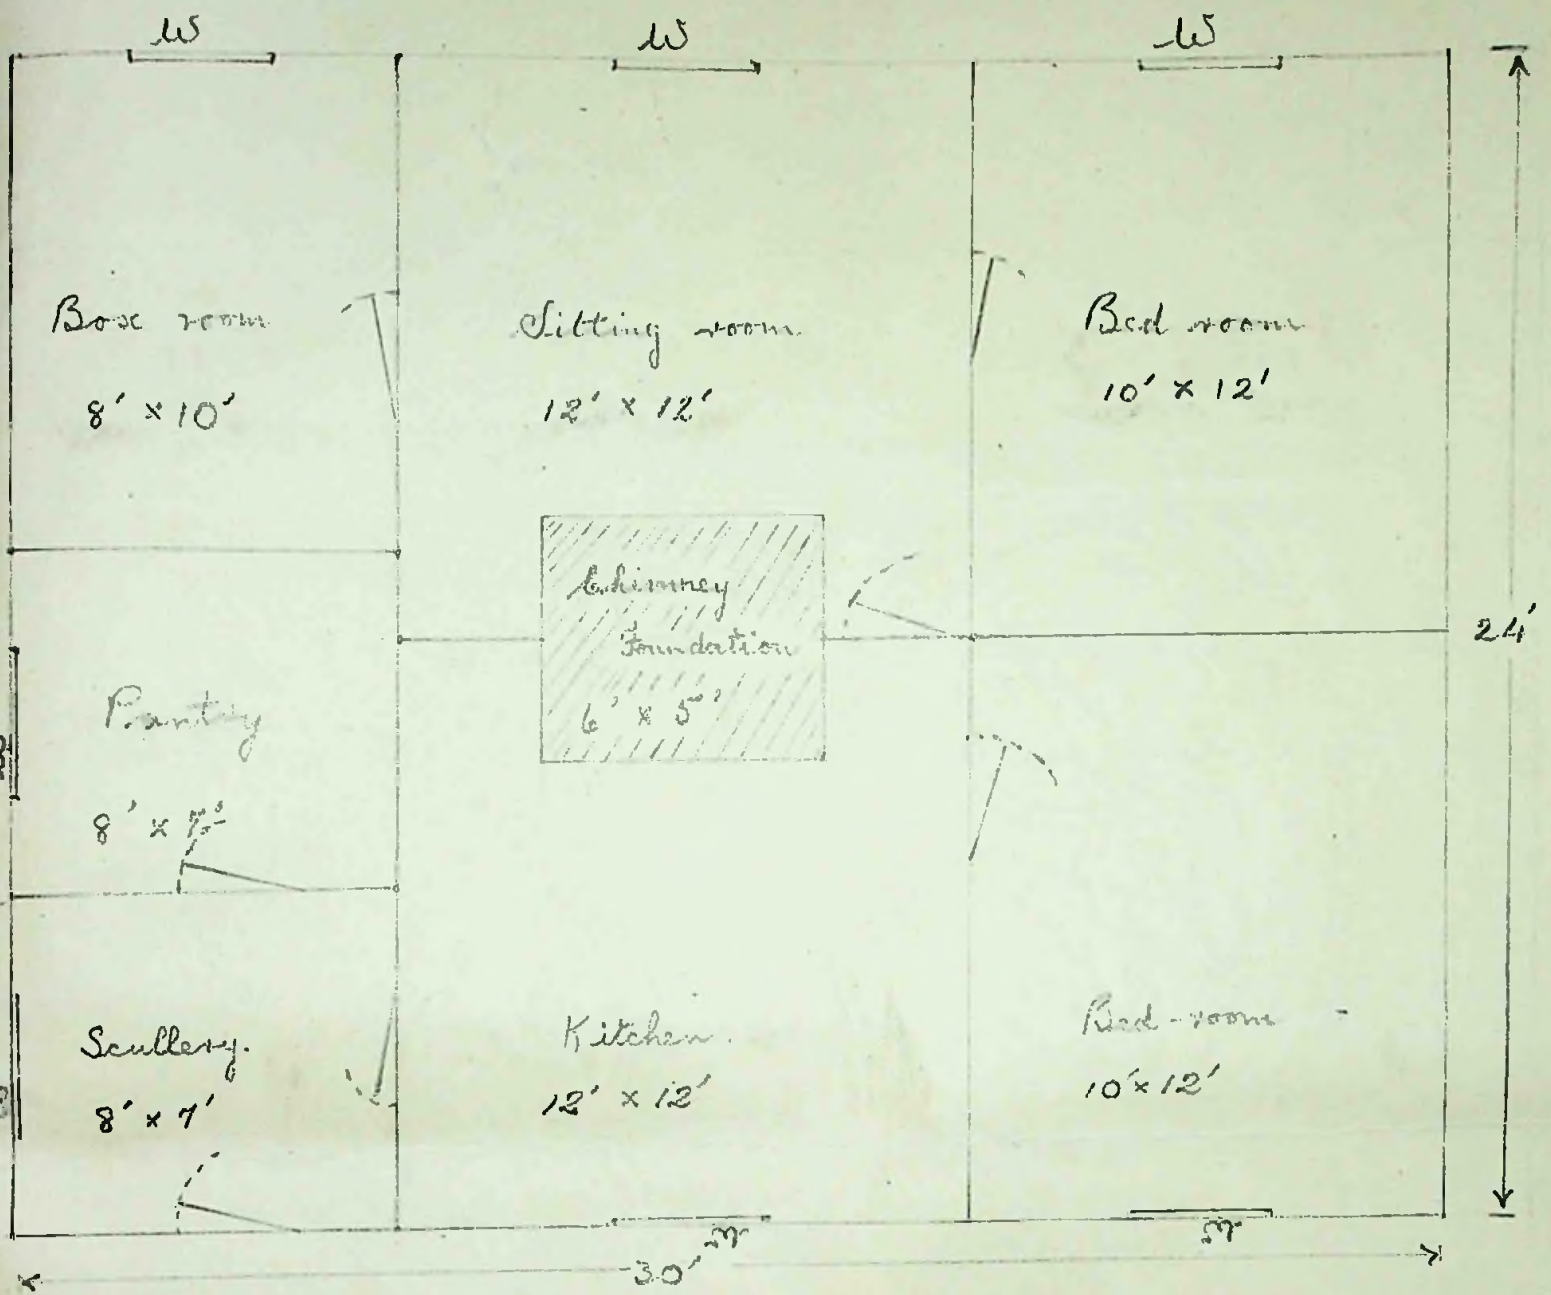 W
W
W
Box room
8' × 10'
Sitting room
12' × 12'
Bed room
10' × 12'
Chimney
Foundation
6' × 5'
24'
Pantry
8' × 7'
W
Scullery.
8' × 7'
W
Kitchen.
12' × 12'
Bed-room
10' × 12'
W
W
30'